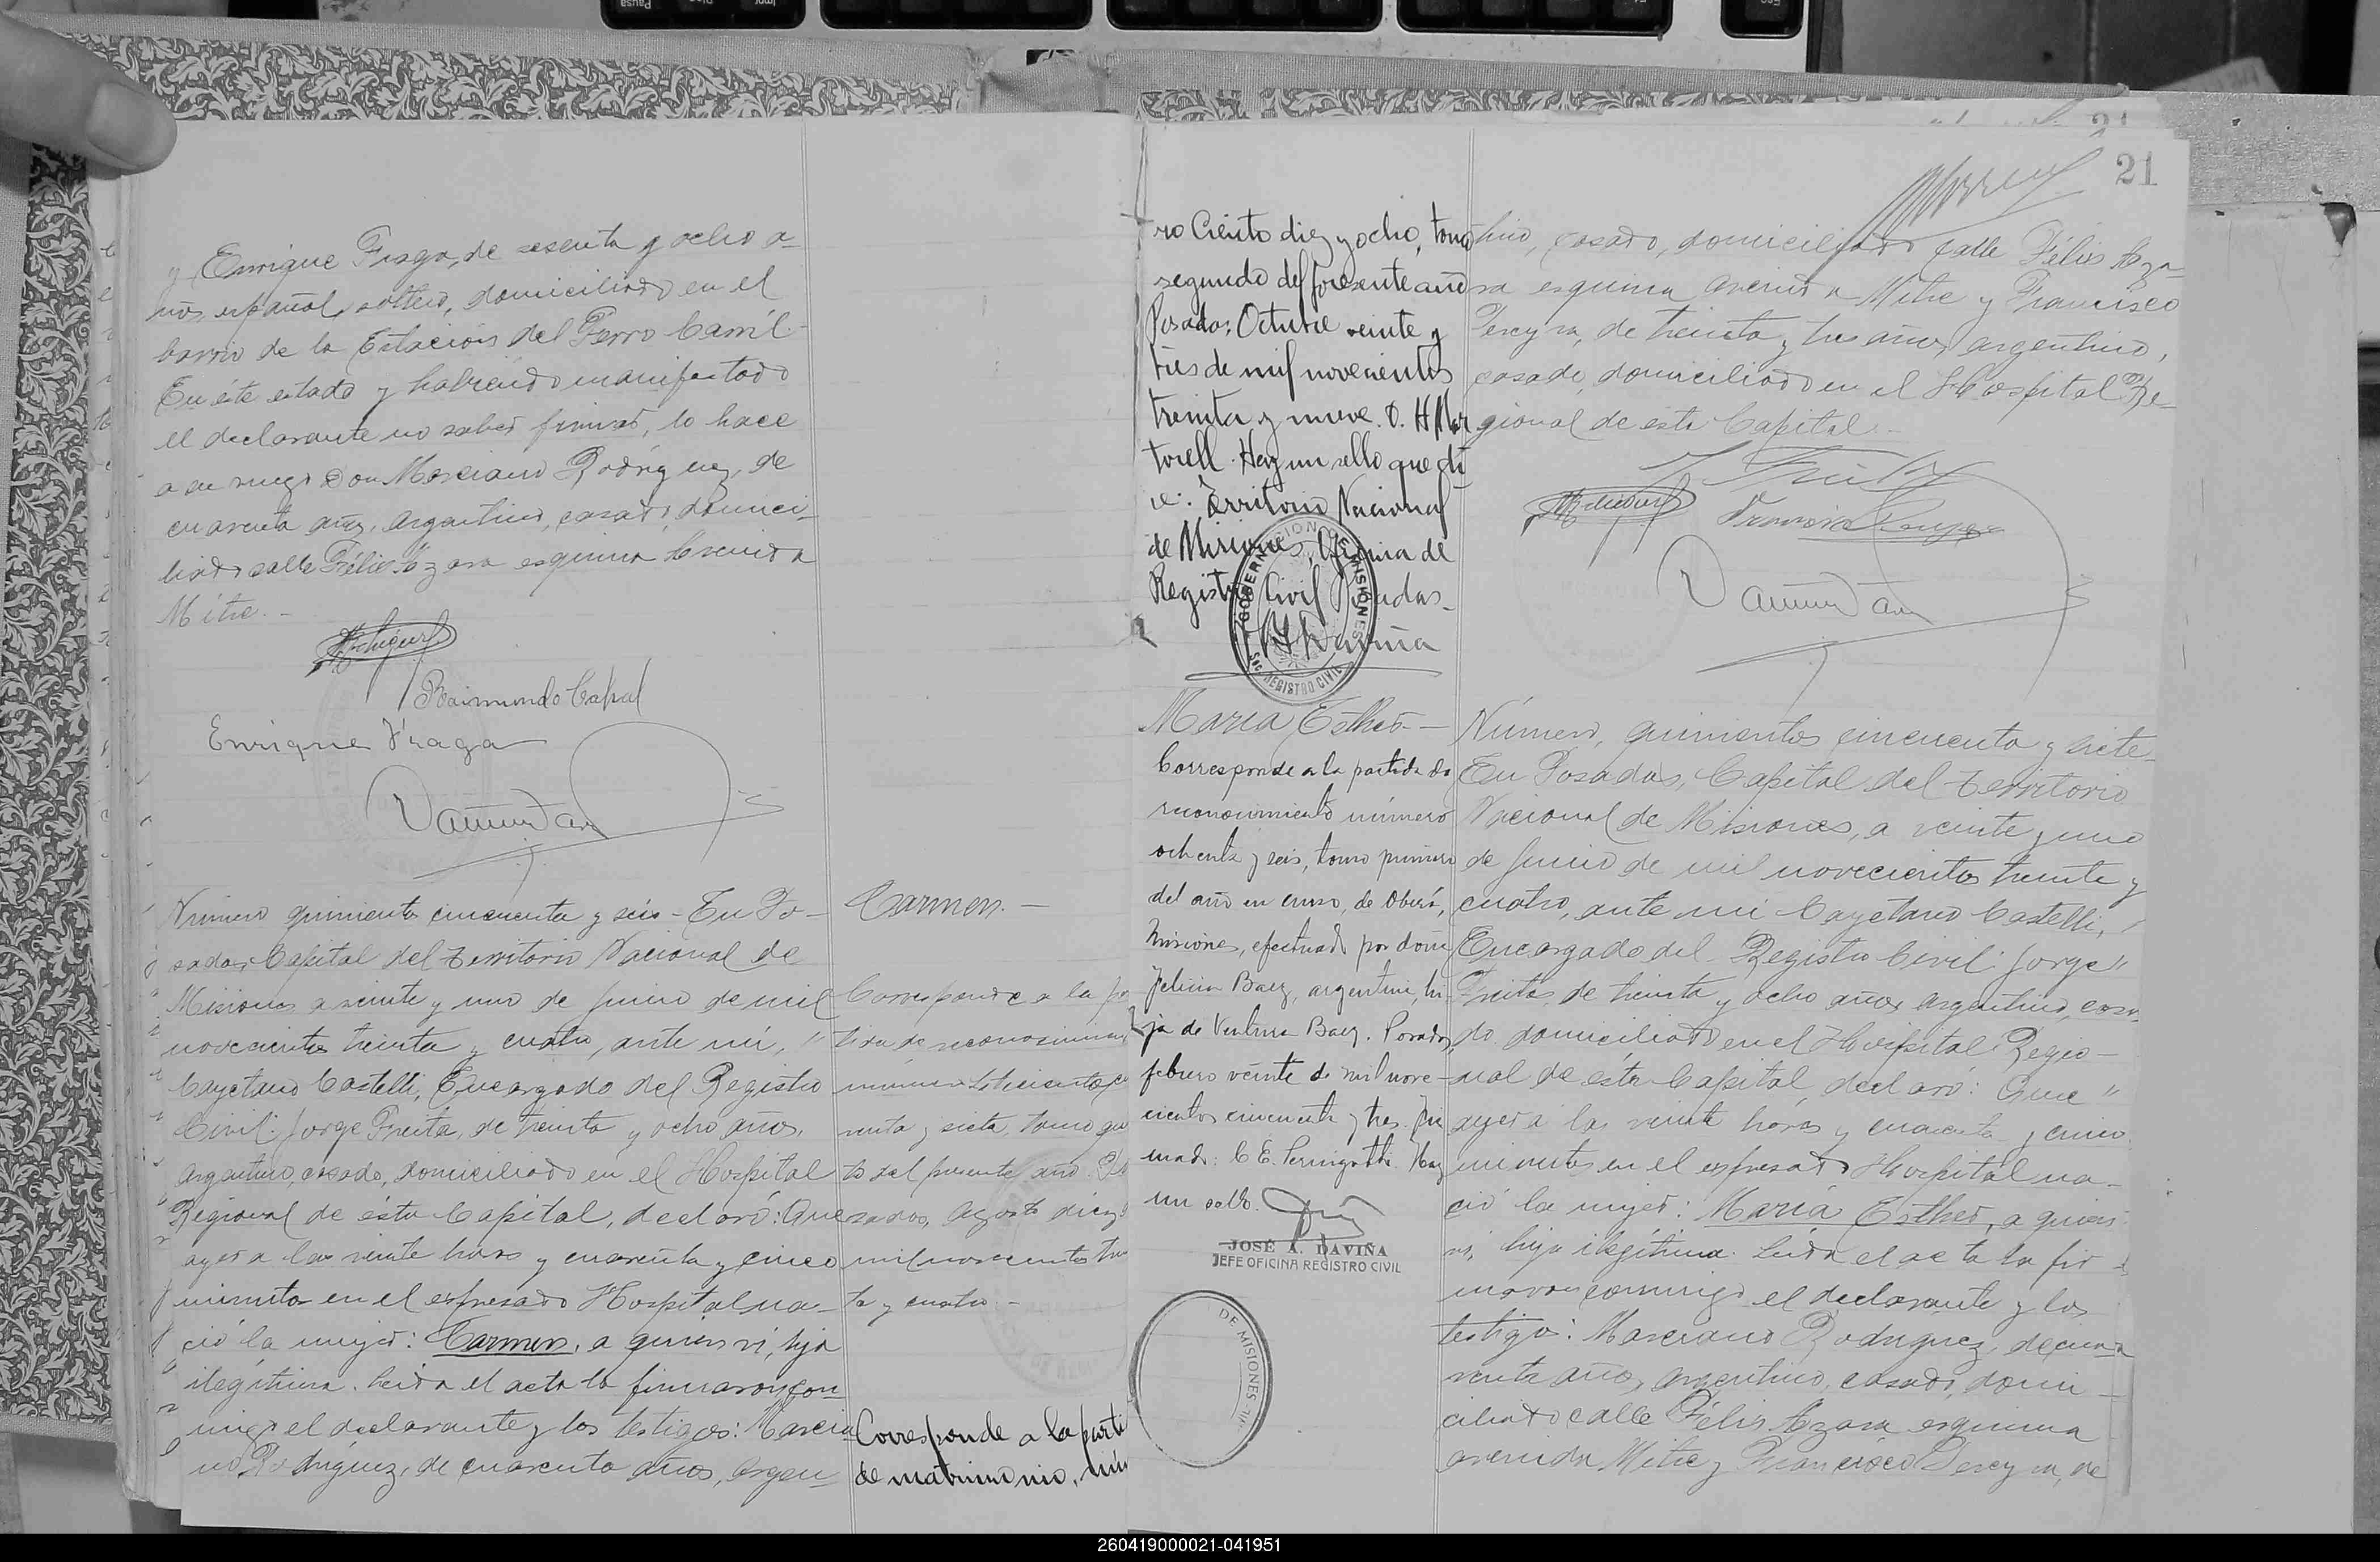 y Enrique Fraga, de sesenta y ocho a-
ños, español, soltero, domiciliado en el
barrio de la Estación del Ferro Carril.-
En éste estado y habiendo manifestado
el declarante no saber firmar, lo hace
a su ruego Don Marciano Rodriguez, de
cuarenta años, argentino, casado, domici-
liado calle Félix Azara esquina Avenida
Mitre.-
Raimundo Cabral
Enrique Fraga
Número quinientos cincuenta y seis - En Po-
sadas, Capital del Territorio Nacional de
Misiones a veinte y uno de Junio de mil
novecientos treinta y cuatro, ante mí, "
Cayetano Castelli, Encargado del Registro
Civil: Jorge Freita, de treinta y ocho años,
argentino, casado, domiciliado en el Hospital
Regional de ésta Capital, declaró: Que
ayer a las veinte horas y cuarenta y cinco
minutos en el expresado Hospital na-
ció la mujer: Carmen, a quien vi, hija
ilegítima. Leida el acta la firmaron con-
migo el declarante y los testigos: Marcia-
no Rodriguez, de cuarenta años, argen-
Carmen.-
Corresponde a la par
tida de reconocimien
número
renta y siete, tomo
to del presente año. Po
sadas, Agosto diez
mil novecientos trein
ta y cuatro.-
Corresponde a la parti
de matrimonio, núm
ro Ciento diez y ocho, tomo
segundo del presente año
Posadas, Octubre veinte y
tres de mil novecientos
treinta y nueve. O. H Mar
torell. Hay un sello que di
ce: Territorio Nacional
de Misiones, Oficina de
Registro Civil Posadas-
GOBERNACION DE MISIONES
REGISTRO CIVIL
María Esther-
Corresponde a la partida de
reconocimiento número
ochenta y seis, tomo primero
del año en curso, de Oberá,
Misiones, efectuado por doña
Felicia Baez, argentina, hi-
ja de Ventura Baez. Posadas,
febrero veinte de mil nove-
cientos cincuenta y tres. Fir
mado: C. E. Hay
un sello.
JOSÉ A. DAVIÑA
JEFE OFICINA REGISTRO CIVIL
DE MISIONES
21
tino, casado, domiciliado calle Félix Aza-
ra esquina avenida Mitre y Francisco
Pereyra, de treinta y tres años, argentino,
casado, domiciliado en el Hospital Re-
gional de esta Capital.-
Número, quinientos cincuenta y siete
En Posadas, Capital del Territorio
Nacional de Misiones, a veinte y uno
de Junio de mil novecientos treinta y
cuatro, ante mí Cayetano Castelli,
Encargado del Registro Civil: Jorge "
Freita, de treinta y ocho años, argentino, casa-
do, domiciliado en el Hospital Regio-
nal de ésta Capital, declaró: Que "
ayer a las veinte horas y cuarenta y cinco
minutos en el expresado Hospital na-
ció la mujer: María Esther, a quien
vi, hija ilegítima. Leida el acta la fir-
maron conmigo el declarante y los
testigos: Marciano Rodriguez, de cua-
renta años, argentino, casado, domi-
ciliado calle Félix Azara esquina
avenida Mitre y Francisco Pereyra, de
260419000021-041951